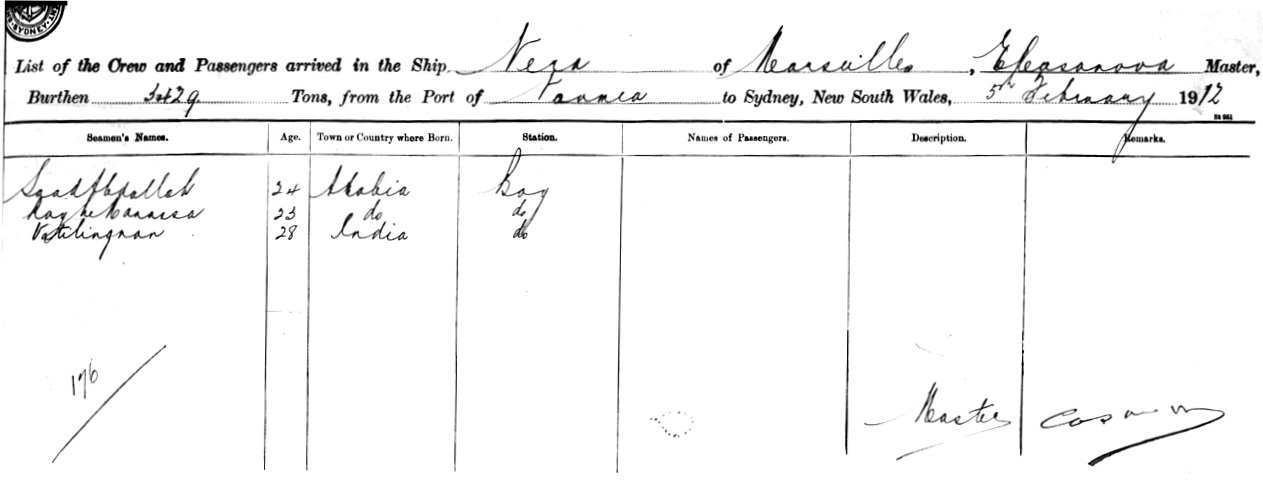 SYDNEY
List of the Crew and Passengers arrived in the Ship Nera of Marseilles, E Casanova Master,
Burthen 3429 Tons, from the Port of Noumea to Sydney, New South Wales, 5th February 1912
Seamen's Names. Age. Town or Country where Born. Station. Names of Passengers. Description. Remarks.
Saad Abdallah 24 Arabia Boy
23 do do
28 India do
176
Master Casanova